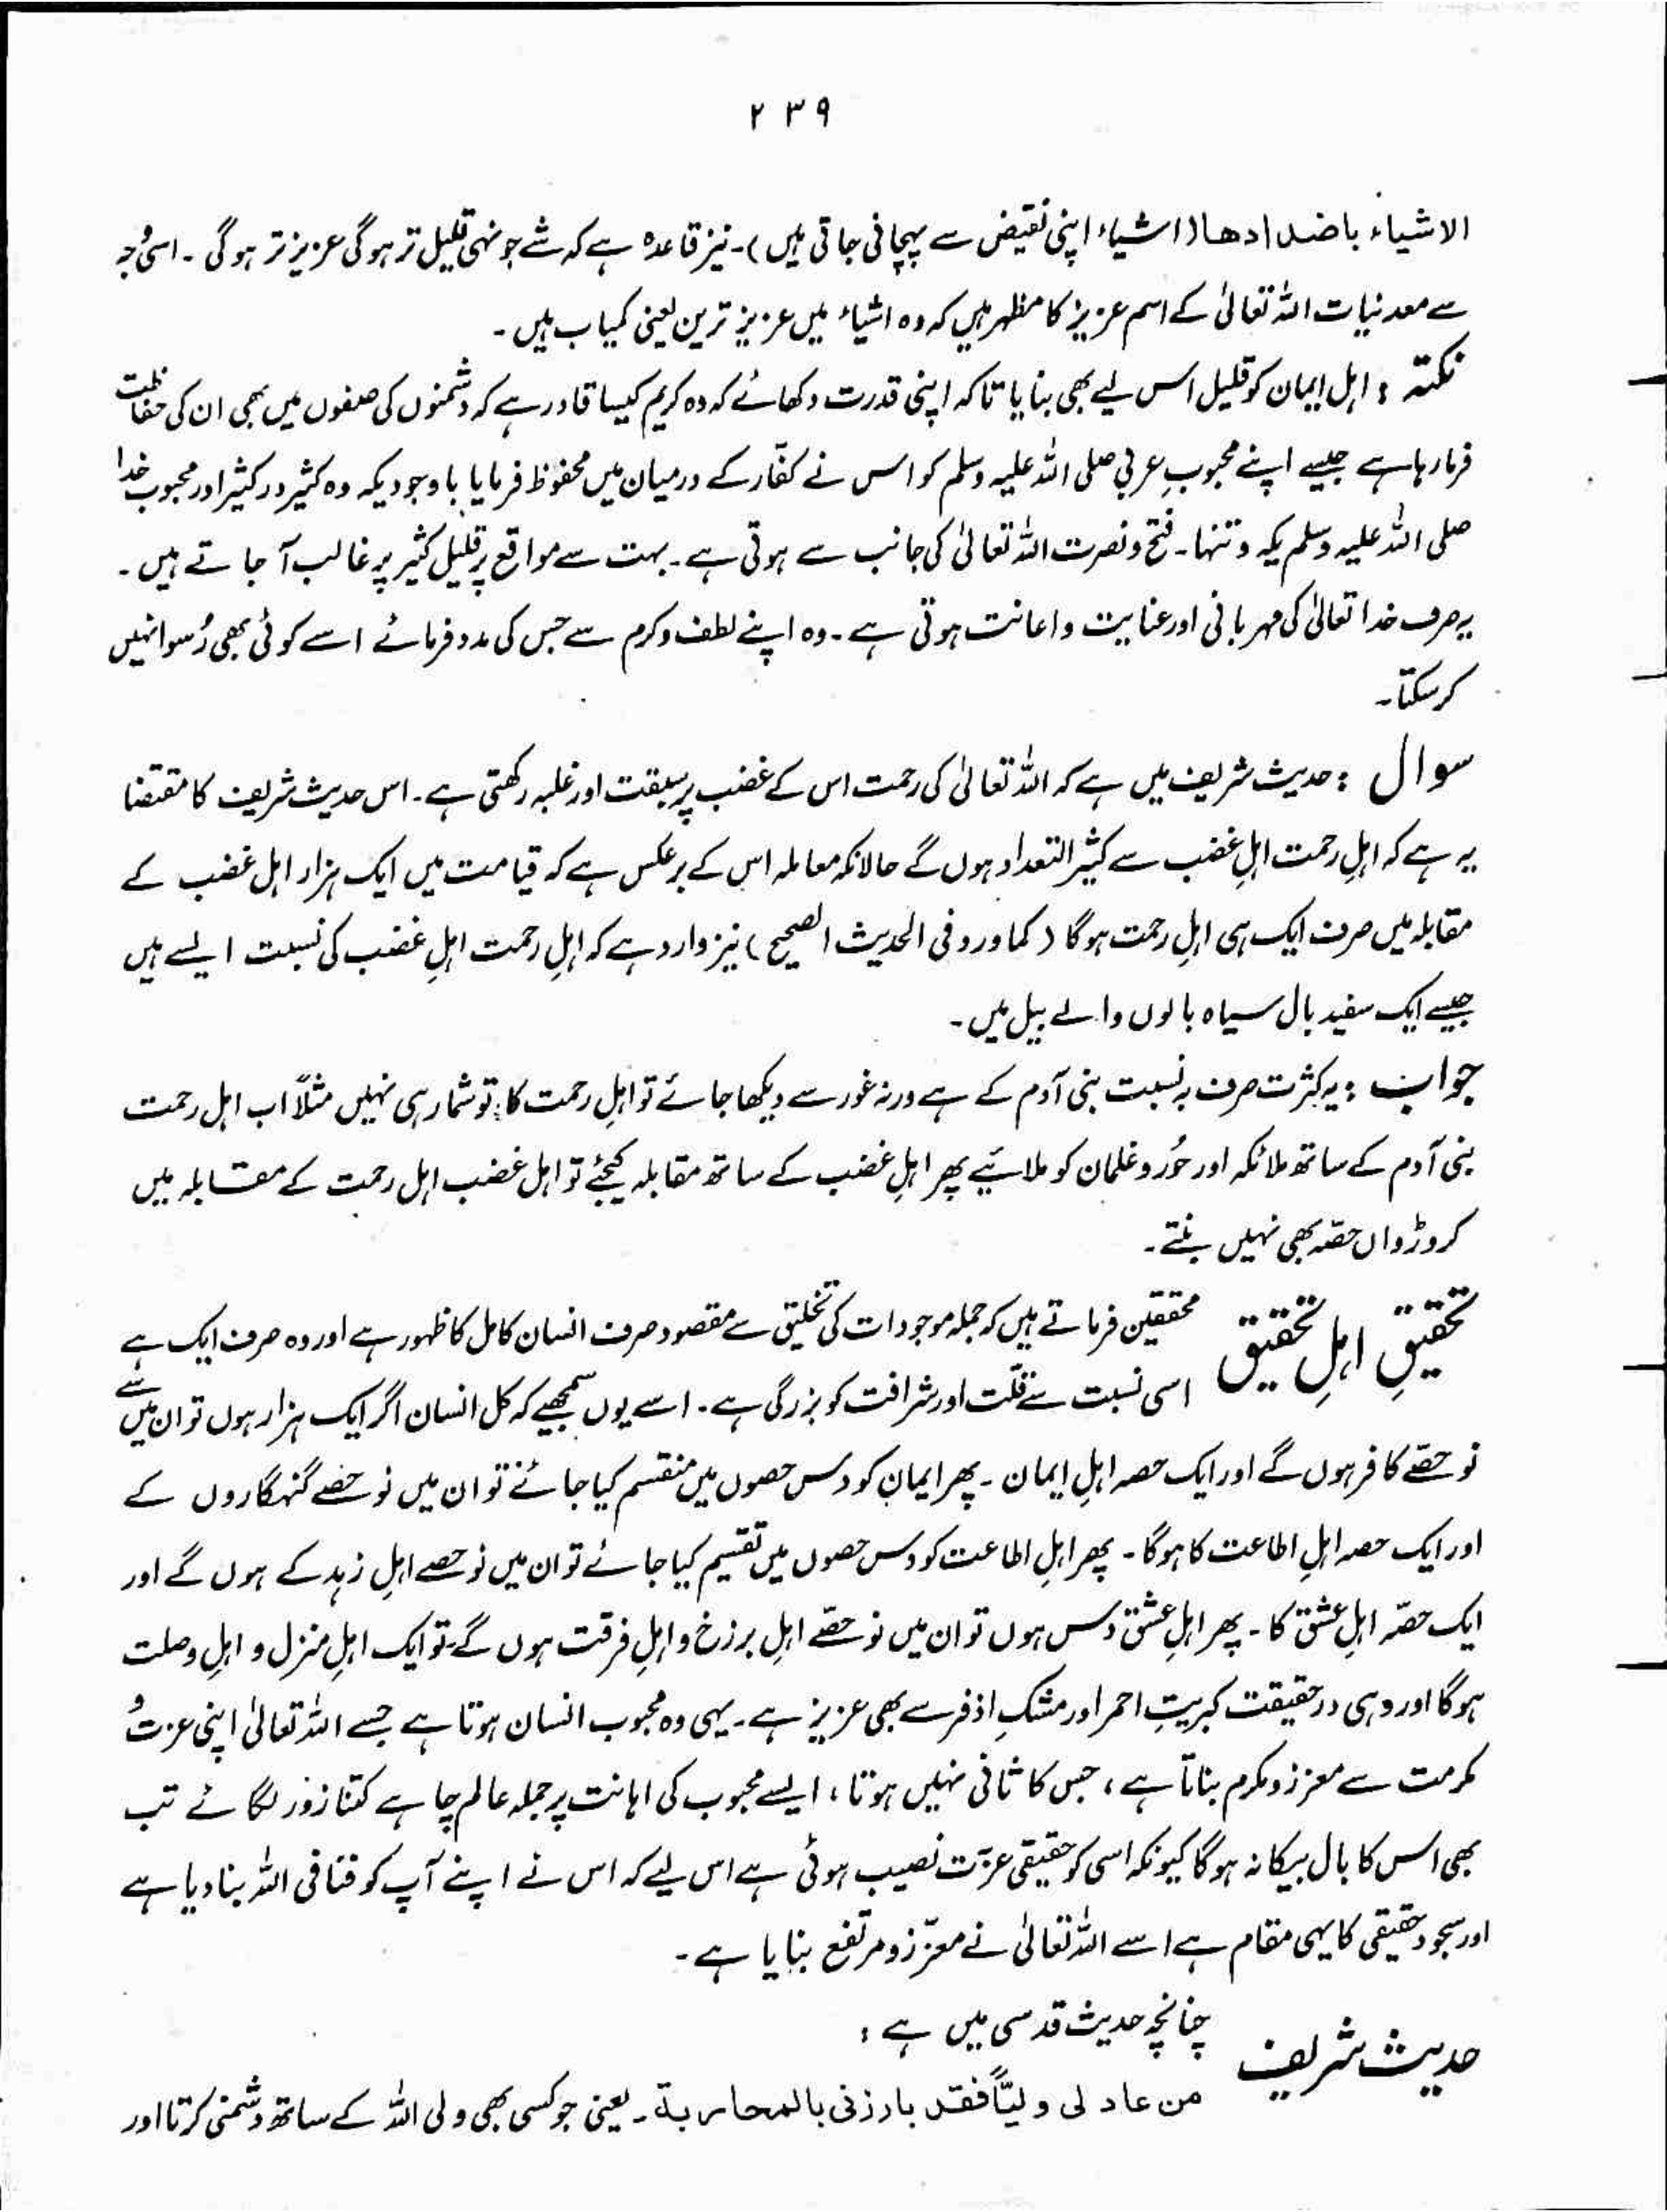 ۲۳۹
الاشیاء باضدادھا (اشیاء اپنی نقیض سے پہچانی جاتی ہیں)۔ نیز قاعدہ ہے کہ شے جونہی قلیل تر ہوگی عزیز تر ہوگی ۔ اسی وجہ
سے معدنیات اللہ تعالیٰ کے اسم عزیز کا مظہر ہیں کہ وہ اشیاء میں عزیز ترین یعنی کمیاب ہیں ۔
نکتہ : اہل ایمان کو قلیل اس لیے بھی بنایا تاکہ اپنی قدرت دکھائے کہ وہ کریم کیسا قادر ہے کہ دشمنوں کی صفوں میں بھی ان کی حفاظت
فرما رہا ہے جیسے اپنے محبوبِ عربی صلی اللہ علیہ وسلم کو اس نے کفّار کے درمیان میں محفوظ فرمایا باوجودیکہ وہ کثیر در کثیر اور محبوب خدا
صلی اللہ علیہ وسلم یکہ و تنہا ۔ فتح و نصرت اللہ تعالیٰ کی جانب سے ہوتی ہے ۔ بہت سے مواقع پر قلیل کثیر پر غالب آ جاتے ہیں ۔
یہ صرف خدا تعالیٰ کی مہربانی اور عنایت و اعانت ہوتی ہے ۔ وہ اپنے لطف و کرم سے جس کی مدد فرمائے اسے کوئی بھی رُسوا نہیں
کر سکتا ۔
سوال : حدیث شریف میں ہے کہ اللہ تعالیٰ کی رحمت اس کے غضب پر سبقت اور غلبہ رکھتی ہے ۔ اس حدیث شریف کا مقتضا
یہ ہے کہ اہلِ رحمت اہلِ غضب سے کثیر التعداد ہوں گے حالانکہ معاملہ اس کے برعکس ہے کہ قیامت میں ایک ہزار اہل غضب کے
مقابلہ میں صرف ایک ہی اہلِ رحمت ہوگا ( کما ورد فی الحدیث الصحیح ) نیز وارد ہے کہ اہلِ رحمت اہلِ غضب کی نسبت ایسے ہیں
جیسے ایک سفید بال سیاہ بالوں والے بیل میں ۔
جواب : یہ کثرت صرف بہ نسبت بنی آدم کے ہے ورنہ غور سے دیکھا جائے تو اہلِ رحمت کا تو شمار ہی نہیں مثلاً اب اہل رحمت
بنی آدم کے ساتھ ملائکہ اور حُور و غلمان کو ملائیے پھر اہلِ غضب کے ساتھ مقابلہ کیجئے تو اہل غضب اہل رحمت کے مقابلہ میں
کروڑواں حصّہ بھی نہیں بنتے ۔
تحقیقِ اہلِ تحقیق محققین فرماتے ہیں کہ جملہ موجودات کی تخلیق سے مقصود صرف انسان کامل کا ظہور ہے اور وہ صرف ایک ہے
اسی نسبت سے قلّت اور شرافت کو بزرگی ہے ۔ اسے یوں سمجھیے کہ کل انسان اگر ایک ہزار ہوں تو ان میں سے
نو حصّے کافر ہوں گے اور ایک حصہ اہلِ ایمان ۔ پھر ایمان کو دس حصوں میں منقسم کیا جائے تو ان میں نو حصے گنہگاروں کے
اور ایک حصہ اہلِ اطاعت کا ہوگا ۔ پھر اہلِ اطاعت کو دس حصوں میں تقسیم کیا جائے تو ان میں نو حصے اہلِ زہد کے ہوں گے اور
ایک حصّہ اہلِ عشق کا ۔ پھر اہلِ عشق دس ہوں تو ان میں نو حصّے اہلِ برزخ و اہلِ فرقت ہوں گے تو ایک اہلِ منزل و اہلِ وصلت
ہوگا اور وہی درحقیقت کبریتِ احمر اور مشکِ اذفر سے بھی عزیز ہے ۔ یہی وہ محبوب انسان ہوتا ہے جسے اللہ تعالیٰ اپنی عزت و
کرمت سے معزز و مکرم بناتا ہے ، جس کا ثانی نہیں ہوتا ، ایسے محبوب کی اہانت پر جملہ عالم چاہے کتنا زور لگائے تب
بھی اس کا بال بیکا نہ ہوگا کیونکہ اسی کو حقیقی عزّت نصیب ہوئی ہے اس لیے کہ اس نے اپنے آپ کو فنا فی اللہ بنا دیا ہے
اور سجود حقیقی کا یہی مقام ہے اسے اللہ تعالیٰ نے معزّز و مرتفع بنایا ہے ۔
حدیث شریف چنانچہ حدیث قدسی میں ہے :
من عاد لی ولیّاً فقد بارزنی بالمحاربة ۔ یعنی جو کسی بھی ولی اللہ کے ساتھ دشمنی کرتا اور